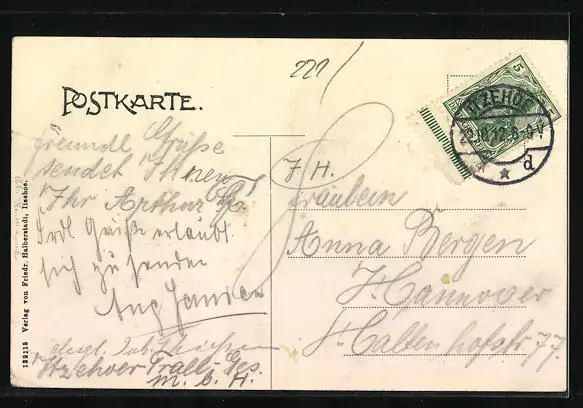 221/
POSTKARTE.
5
5
ITZEHOE
10.12.8-9V
* d
freundl Grüße
sendet Ihnen
Ihr Arthur
Frdl Grüße erlaubt
sich zu senden
Aug Jansen
Itzehoer Trall-Ges
m. b. H.
J. H.
Fräulein
Anna Bergen
Hannover
Haltenhofstr 77.
132115 Verlag von Friedr. Halberstadt, Itzehoe.